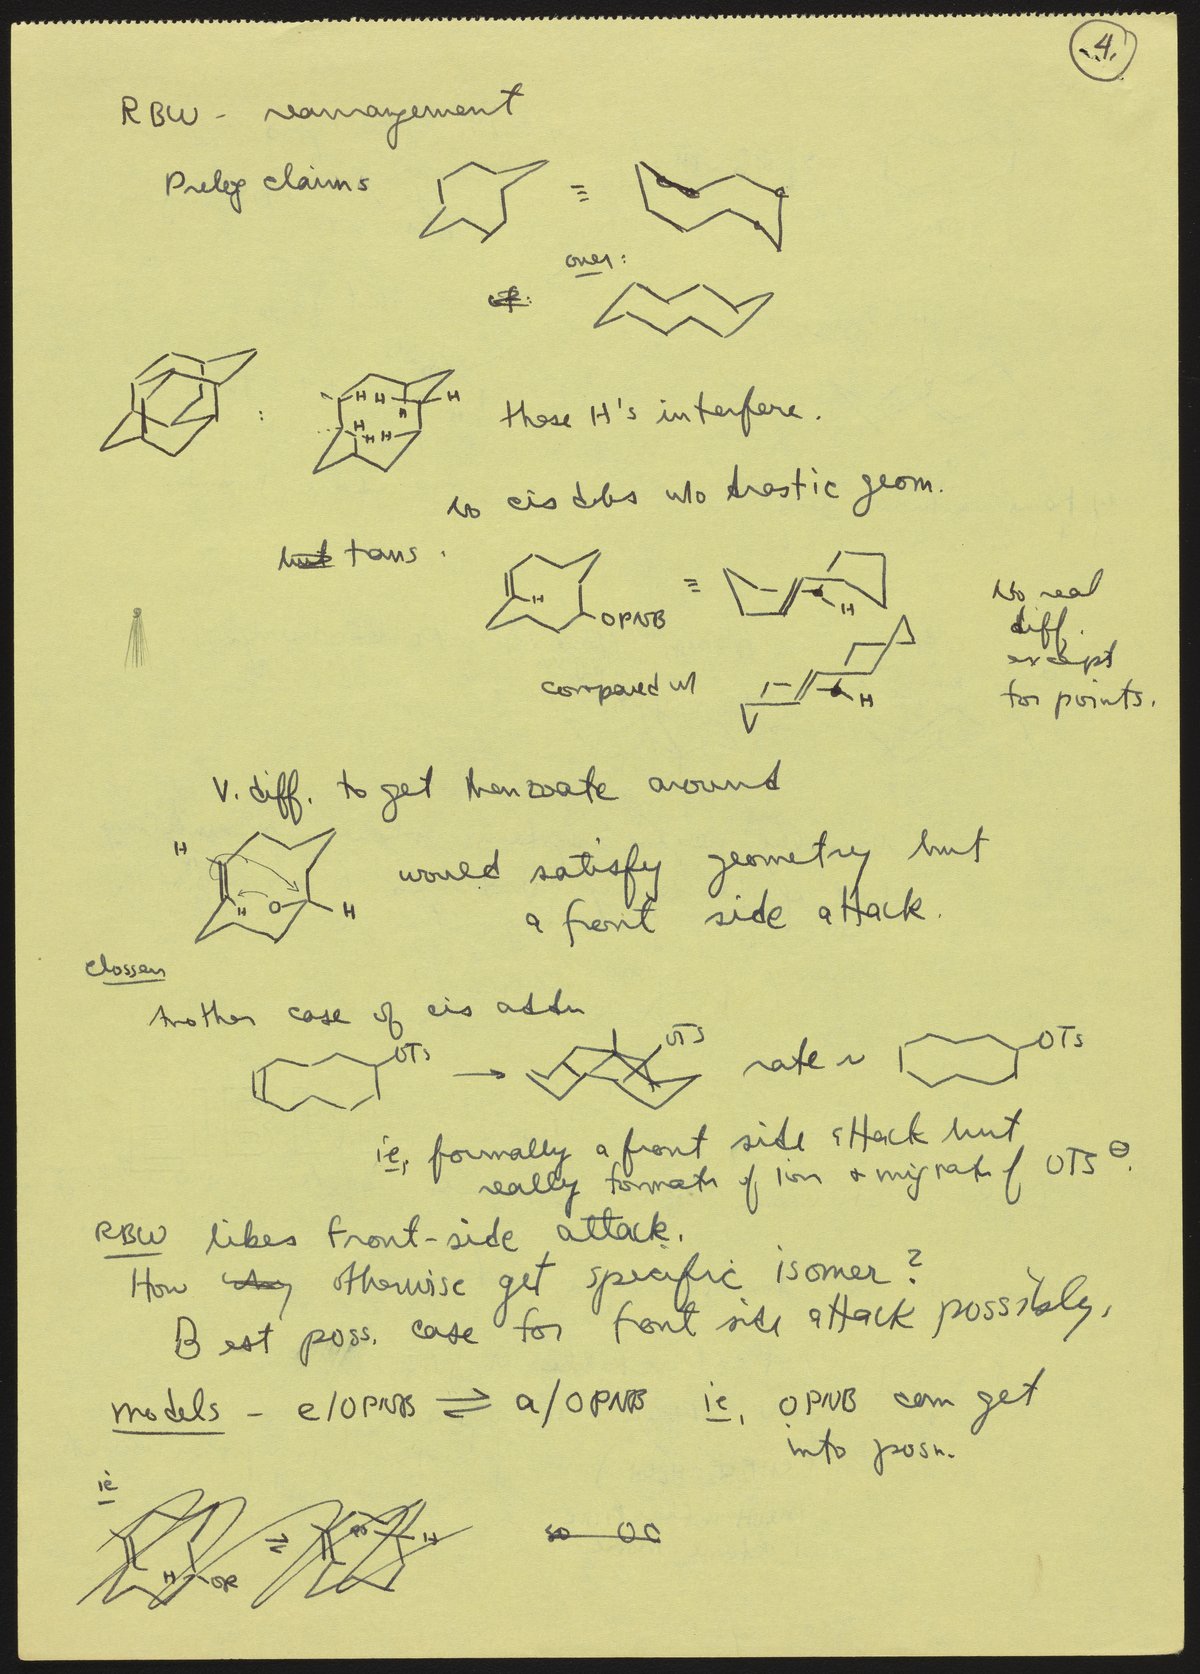 4.
RBW - rearrangement
Prelog claims ≡
over:
H H H
H
H H
these H's interfere.
No cis dbs w/o drastic geom.
but trans.
H
OPNB
≡
H
No real
diff.
except
for points.
compared w/
H
V. diff. to get benzoate around
H
H O H
would satisfy geometry but
a front side attack.
Closson
Another case of cis addn
OTs → OTs rate ~ OTs
ie, formally a front side attack but
really formatn of ion & migratn of OTS⊖.
RBW likes front-side attack.
How otherwise get specific isomer?
Best poss. case for front side attack possibly.
models - e/OPNB ⇌ a/OPNB ie, OPNB can get
into posn.
ie
H OR ⇌ H